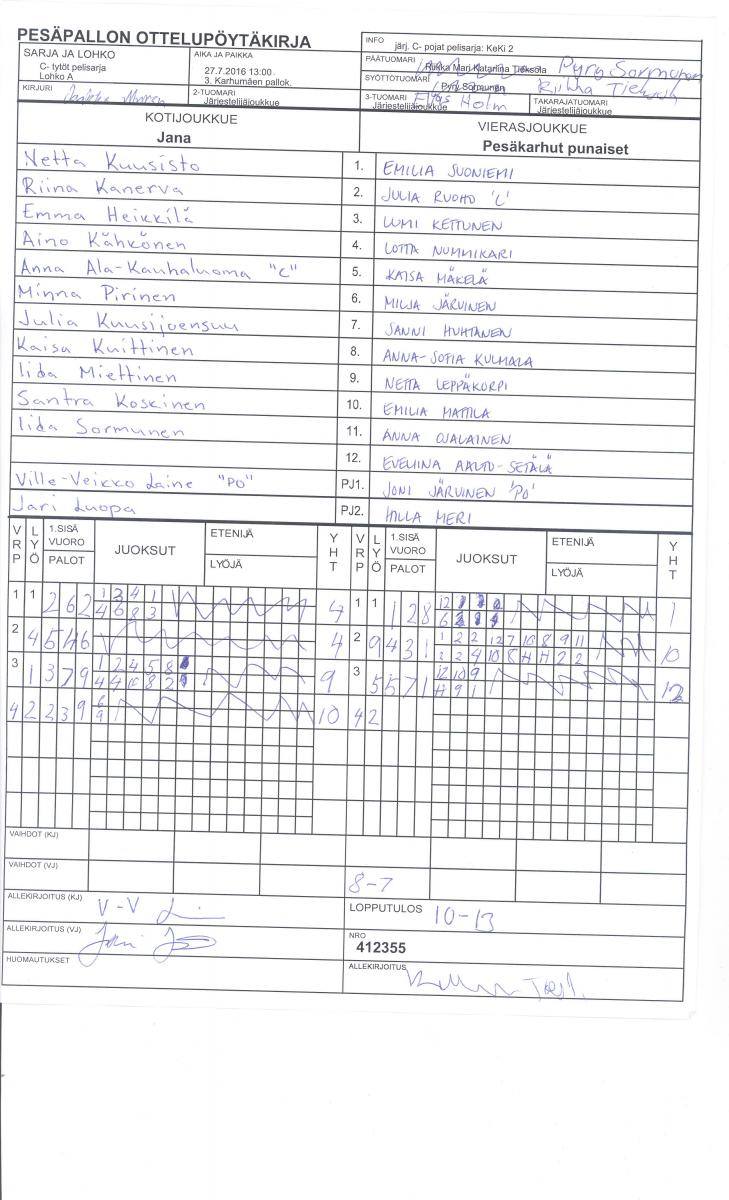 PESÄPALLON OTTELUPÖYTÄKIRJA
INFO järj. C- pojat pelisarja: KeKi 2
SARJA JA LOHKO
C- tytöt pelisarja
Lohko A
AIKA JA PAIKKA
27.7.2016 13:00
3. Karhumäen pallok.
PÄÄTUOMARI Riikka Mari Katariina Tieksola Pyry Sormunen
SYÖTTÖTUOMARI Pyry Sormunen Riikka
KIRJURI
2-TUOMARI
Järjestelijäjoukkue
3-TUOMARI
Järjestelijäjoukkue
Holm
TAKARAJATUOMARI
Järjestelijäjoukkue
KOTIJOUKKUE
Jana
VIERASJOUKKUE
Pesäkarhut punaiset
Netta Kuusisto 1. EMILIA SUONIEMI
Riina Kanerva 2. JULIA RUOHO 'C'
Emma Heikkilä 3. LUMI KETTUNEN
Aino Kähkönen 4. LOTTA NUMMIKARI
Anna Ala-Kauhaluoma "C" 5. KAISA MÄKELÄ
Minna Pirinen 6. MILJA JÄRVINEN
Julia Kuusijoensuu 7. SANNI HUHTANEN
Kaisa Kuittinen 8. ANNA-SOFIA KULMALA
Iida Miettinen 9. NETTA LEPPÄKORPI
Santra Koskinen 10. EMILIA MATTILA
Iida Sormunen 11. ANNA OJALAINEN
12. EVELIINA AALTO-SETÄLÄ
Ville-Veikko Laine "PO" PJ1. JONI JÄRVINEN 'PO'
Jari Luopa PJ2. HILLA MERI
VRP LYÖ 1.SISÄ VUORO PALOT JUOKSUT ETENIJÄ LYÖJÄ YHT VRP LYÖ 1.SISÄ VUORO PALOT JUOKSUT ETENIJÄ LYÖJÄ YHT
1 1 2 6 2 1 3 4 1 4 1 1 1 2 8 12 1
4 6 8 3 6
2 4 5 4 6 4 2 9 4 3 1 1 2 2 12 7 10 8 9 11 10
2 2 4 10 8 H H 2 2
3 1 3 7 9 1 2 4 5 8 9 3 5 5 7 1 12 10 9
4 4 10 8 2 H 9 1
4 2 2 3 9 6 10 4 2
9
VAIHDOT (KJ)
VAIHDOT (VJ)
8-7
ALLEKIRJOITUS (KJ) V-V
LOPPUTULOS 10-13
ALLEKIRJOITUS (VJ)
NRO
412355
HUOMAUTUKSET
ALLEKIRJOITUS